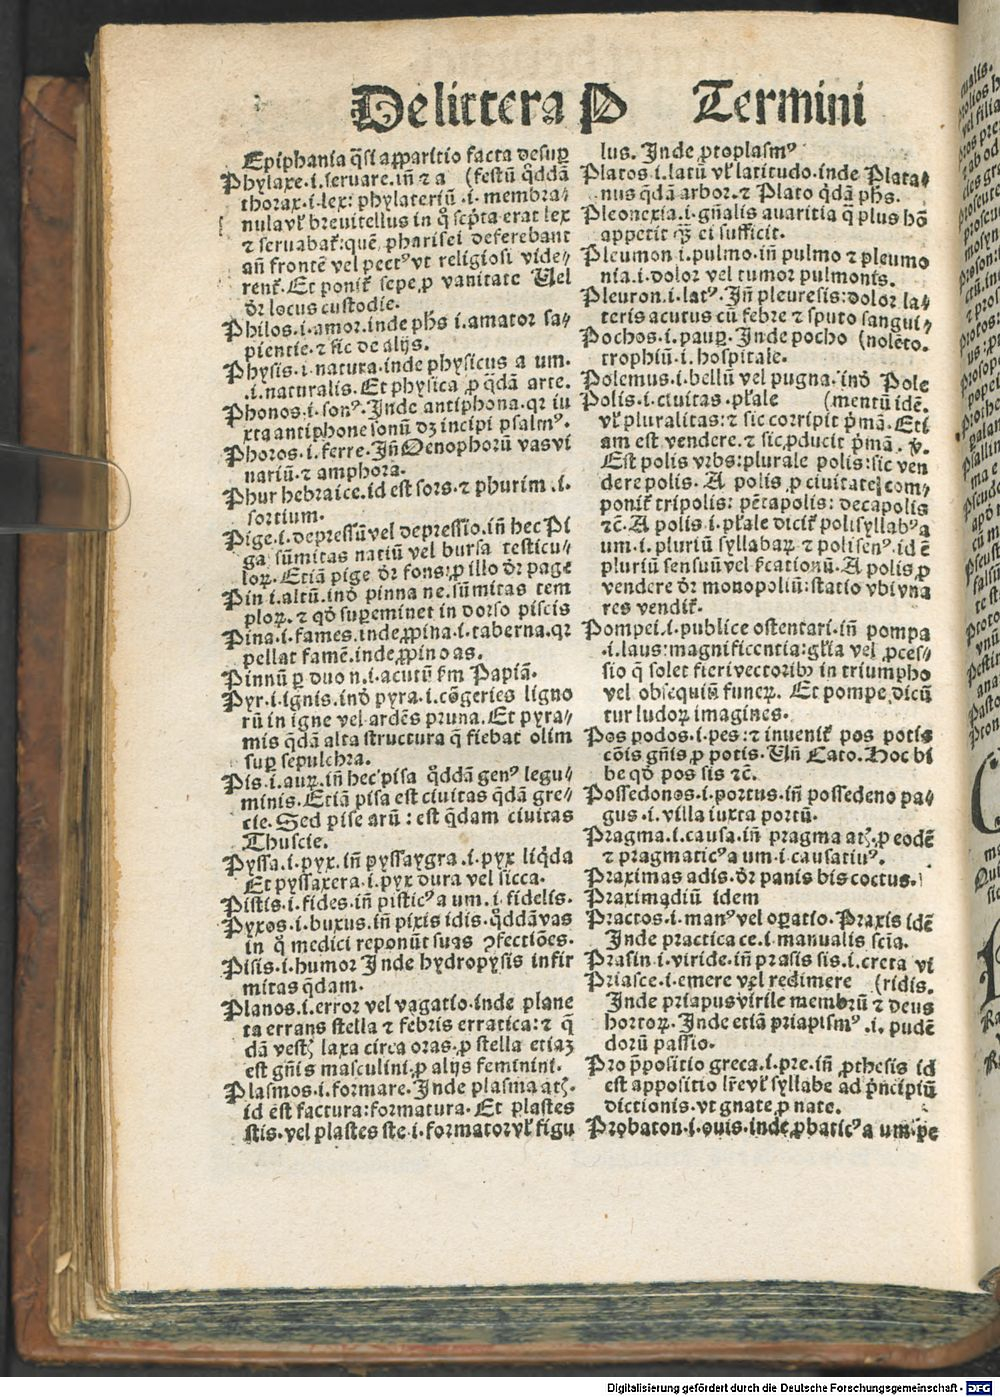 De littera P Termini
Epiphania q̄si apparitio facta desup̱
Phylaxe .i. seruare. iñ & a (festū q̊ddā
thorax .i. lex: phylateriū .i. membra-
nula vꝉ breuitellus in q̊ scp̄ta erat lex
& seruabat̄: quē pharisei deferebant
añ frontē vel pectꝰ vt religiosi vide-
rent̄. Et ponit̄ sepe ꝓ vanitate Vel
d̄r locus custodie.
Philos .i. amor. inde ph̄s .i. amator sa-
pientie. & sic de alijs.
Physis .i. natura. inde physicus a um.
.i. naturalis. Et physica ꝓ q̄dā arte.
Phonos .i. sonꝰ. Inde antiphona. qꝛ iu
xta antiphone sonū dꝫ incipi psalmꝰ.
Phoros .i. ferre. Iñ Oenophorū vas vi
nariū. & amphora.
Phur hebraice. id est sors. & phurim .i.
sortium.
Pige .i. depressū vel depressio. iñ hec Pi
ga sūmitas natiū vel bursa testicu-
loꝝ. Etiā pige d̄r fons: ꝓ illo d̄r page
Pin .i. altū. inď pinna ne. sūmitas tem
ploꝝ. & qď sup̱eminet in dorso piscis
Pina .i. fames. inde ꝓpina .i. taberna. qꝛ
pellat famē. inde ꝓpino as.
Pinnū ꝑ duo n .i. acutū ẜm Papiā.
Pyr .i. ignis. inď pyra .i. cōgeries ligno
rū in igne vel ardēs pruna. Et pyra-
mis q̄dā alta structura q̄ fiebat olim
sup̱ sepulchra.
Pis .i. auꝝ. iñ hec pisa q̊ddā genꝰ legu-
minis. Etiā pisa est ciuitas q̄dā gre-
cie. Sed pise arū: est q̄dam ciuitas
Thuscie.
Pyssa .i. pyx. iñ pyssaygra .i. pyx liq̇da
Et pyssaxera .i. pyx dura vel sicca.
Pistis .i. fides. iñ pisticꝰ a um .i. fidelis.
Pyxos .i. buxus. iñ pixis idis. q̊ddā vas
in q̊ medici reponūt suas ꝯfectiōes.
Pisis .i. humor Inde hydropysis infir
mitas q̄dam.
Planos .i. error vel vagatio. inde plane
ta errans stella & febris erratica: & q̄
dā vestꝭ laxa circa oras. ꝓ stella etiaꝫ
est gn̄is masculini. ꝓ alijs feminini.
Plasmos .i. formare. Inde plasma atꝭ.
id est factura: formatura. Et plastes
stis. vel plastes ste .i. formator vꝉ figu
lus. Inde ꝓtoplasmꝰ
Platos .i. latū vꝉ latitudo. inde Plata-
nus q̄dā arbor. & Plato q̇dā ph̄s.
Pleonexia .i. gn̄alis auaritia q̄ plus hō
appetit q̄ꝫ ei sufficit.
Pleumon .i. pulmo. iñ pulmo & pleumo
nia .i. dolor vel tumor pulmonis.
Pleuron .i. latꝰ. Iñ pleuresis: dolor la-
teris acutus cū febre & sputo sangui-
Pochos .i. paup̱. Inde pocho (nolēto.
trophiū .i. hospitale.
Polemus .i. bellū vel pugna. inď Pole
Polis .i. ciuitas. pꝉale (mentū idē.
vꝉ pluralitas: & sic corripit p̄mā. Eti
am est vendere. & sic ꝓducit p̄mā. v̄.
Est polis vrbs: plurale polis: sic ven
dere polis. A polis ꝓ ciuitate com-
ponit̄ tripolis: pētapolis: decapolis
&c̄. A polis .i. pꝉale dicit̄ polisyllabꝰ a
um .i. pluriū syllabaꝝ & polisenꝰ. id ē
pluriū sensuū vel ẜcationū. A polis ꝓ
vendere d̄r monopoliū: statio vbi vna
res vendit̄.
Pompei .i. publice ostentari. iñ pompa
.i. laus: magnificentia: gꝉia vel ꝓces-
sio q̄ solet fieri vectoribꝫ in triumpho
vel obsequiū funeꝝ. Et pompe dicū
tur ludoꝝ imagines.
Pos podos .i. pes: & inuenit̄ pos potis
cōis gn̄is ꝓ potis. Vñ Cato. Hoc bi
be qď pos sis &c̄.
Possedonos .i. portus. iñ possedeno pa-
gus .i. villa iuxta portū.
Pragma .i. causa. iñ pragma atꝭ. ꝓ eodē
& pragmaticꝰ a um .i. causatiuꝰ.
Praximas adis. d̄r panis bis coctus.
Praximadiū idem
Practos .i. manꝰ vel op̱atio. Praxis idē
Inde practica ce .i. manualis scīa.
Prasin .i. viride. iñ prasis sis .i. creta vi
Priasce .i. emere vel redimere (ridis.
Inde priapus virile membrū & deus
hortoꝝ. Inde etiā priapismꝰ .i. pudē
dorū passio.
Pro p̄positio greca .i. pre. iñ ꝓthesis id
est appositio lr̄e vꝉ syllabe ad p̄ncipiū
dictionis. vt gnate ꝓ nate.
Probaton .i. ouis. inde ꝓbaticꝰ a um. pe
Digitalisierung gefördert durch die Deutsche Forschungsgemeinschaft - DFG